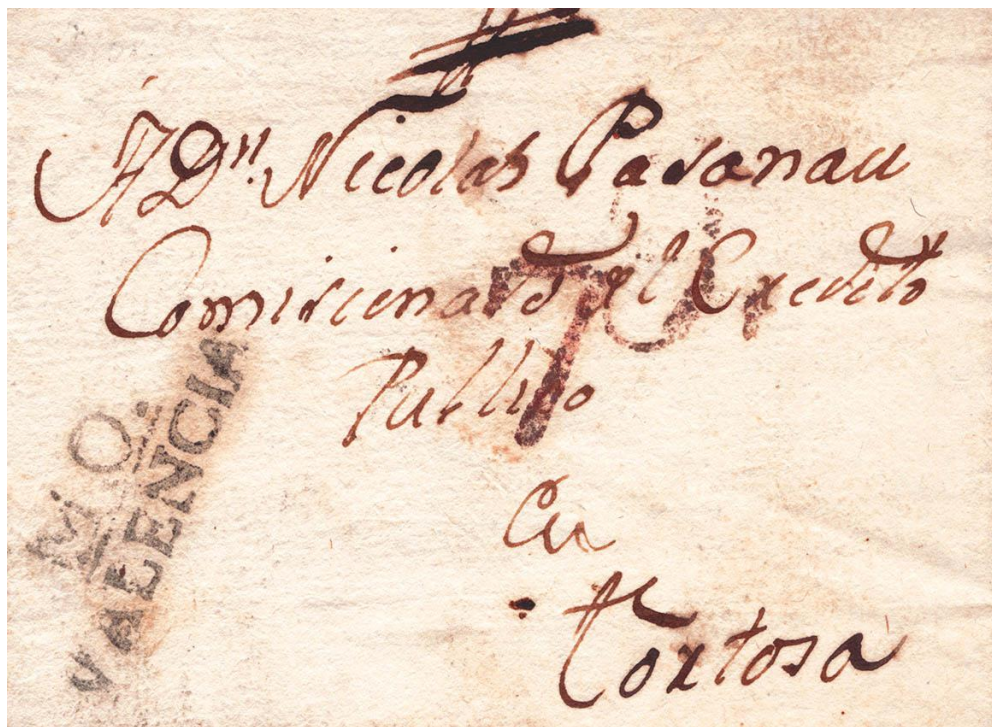 A Dn. Nicolas Pasanau
Comisionado del Credito
Publico
En
Tortosa
M O.
VALENCIA